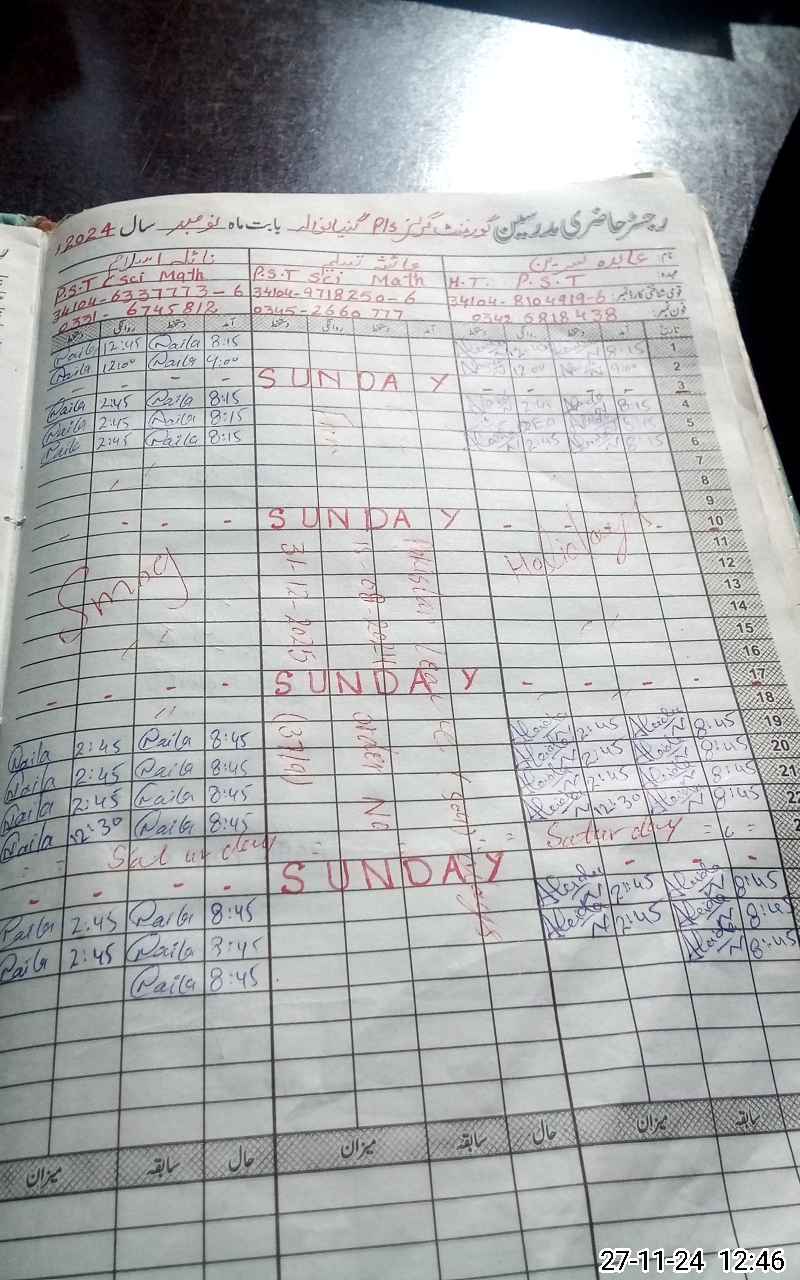 رجسٹر حاضری مدرسین گورنمنٹ گرلز P/s بابت ماہ نومبر سال 2024ء
نام: عابدہ نسرین
نائلہ اسلام
عہدہ: H.T. P.S.T
P.S.T Sci Math
P.S.T C Sci Math
قومی شناختی کارڈ نمبر: 34104-8104919-6
34104-9718250-6
34104-6337773-6
فون نمبر: 0342 6818438
0345-2660 777
0331-6745812
تاریخ آمد دستخط روانگی دستخط آمد دستخط روانگی دستخط آمد دستخط روانگی دستخط
1 8:15 8:15 Naila 12:45 Naila
2 9:00 12:00 9:00 Naila 12:00 Naila
3 - - - - SUNDAY - - -
4 8:15 2:45 8:15 Naila 2:45 Naila
5 8:15 8:15 Naila 2:45 Naila
6 8:15 2:45 8:15 Naila 2:45 Naila
7
8
9
10 - - - SUNDAY - - -
11
12 Holiday
13
14 Smog
15
16
17 - - - - SUNDAY - - - -
18
19 8:45 2:45 8:45 Naila 2:45 Naila
20 8:45 2:45 8:45 Naila 2:45 Naila
21 8:45 2:45 8:45 Naila 2:45 Naila
22 8:45 12:30 8:45 Naila 12:30 Naila
Saturday Saturday
- - - SUNDAY - - - -
8:45 2:45 8:45 Naila 2:45 Naila
8:45 2:45 8:45 Naila 2:45 Naila
8:45 8:45 Naila
31-12-2025
order No
سابقہ میزان حال سابقہ میزان حال سابقہ میزان
27-11-24 12:46